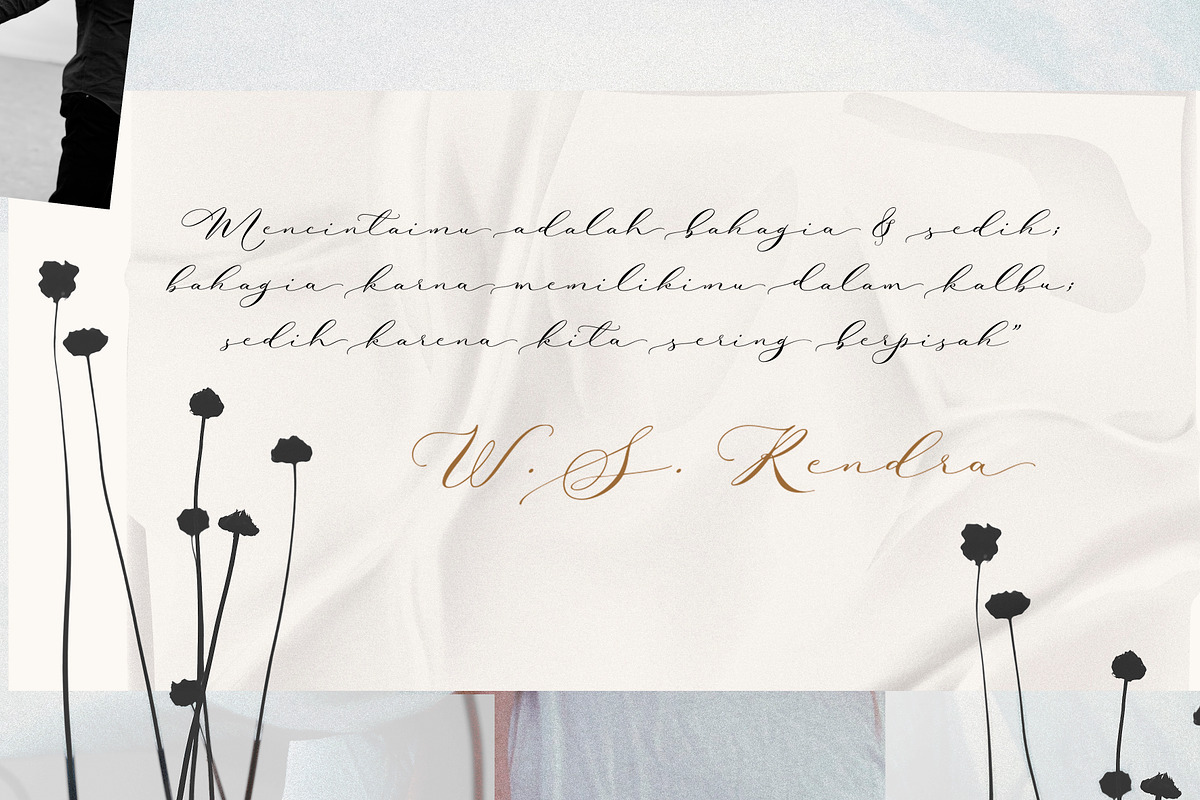 Mencintaimu adalah bahagia & sedih;
bahagia karna memilikimu dalam kalbu;
sedih karena kita sering berpisah”
W. S. Rendra